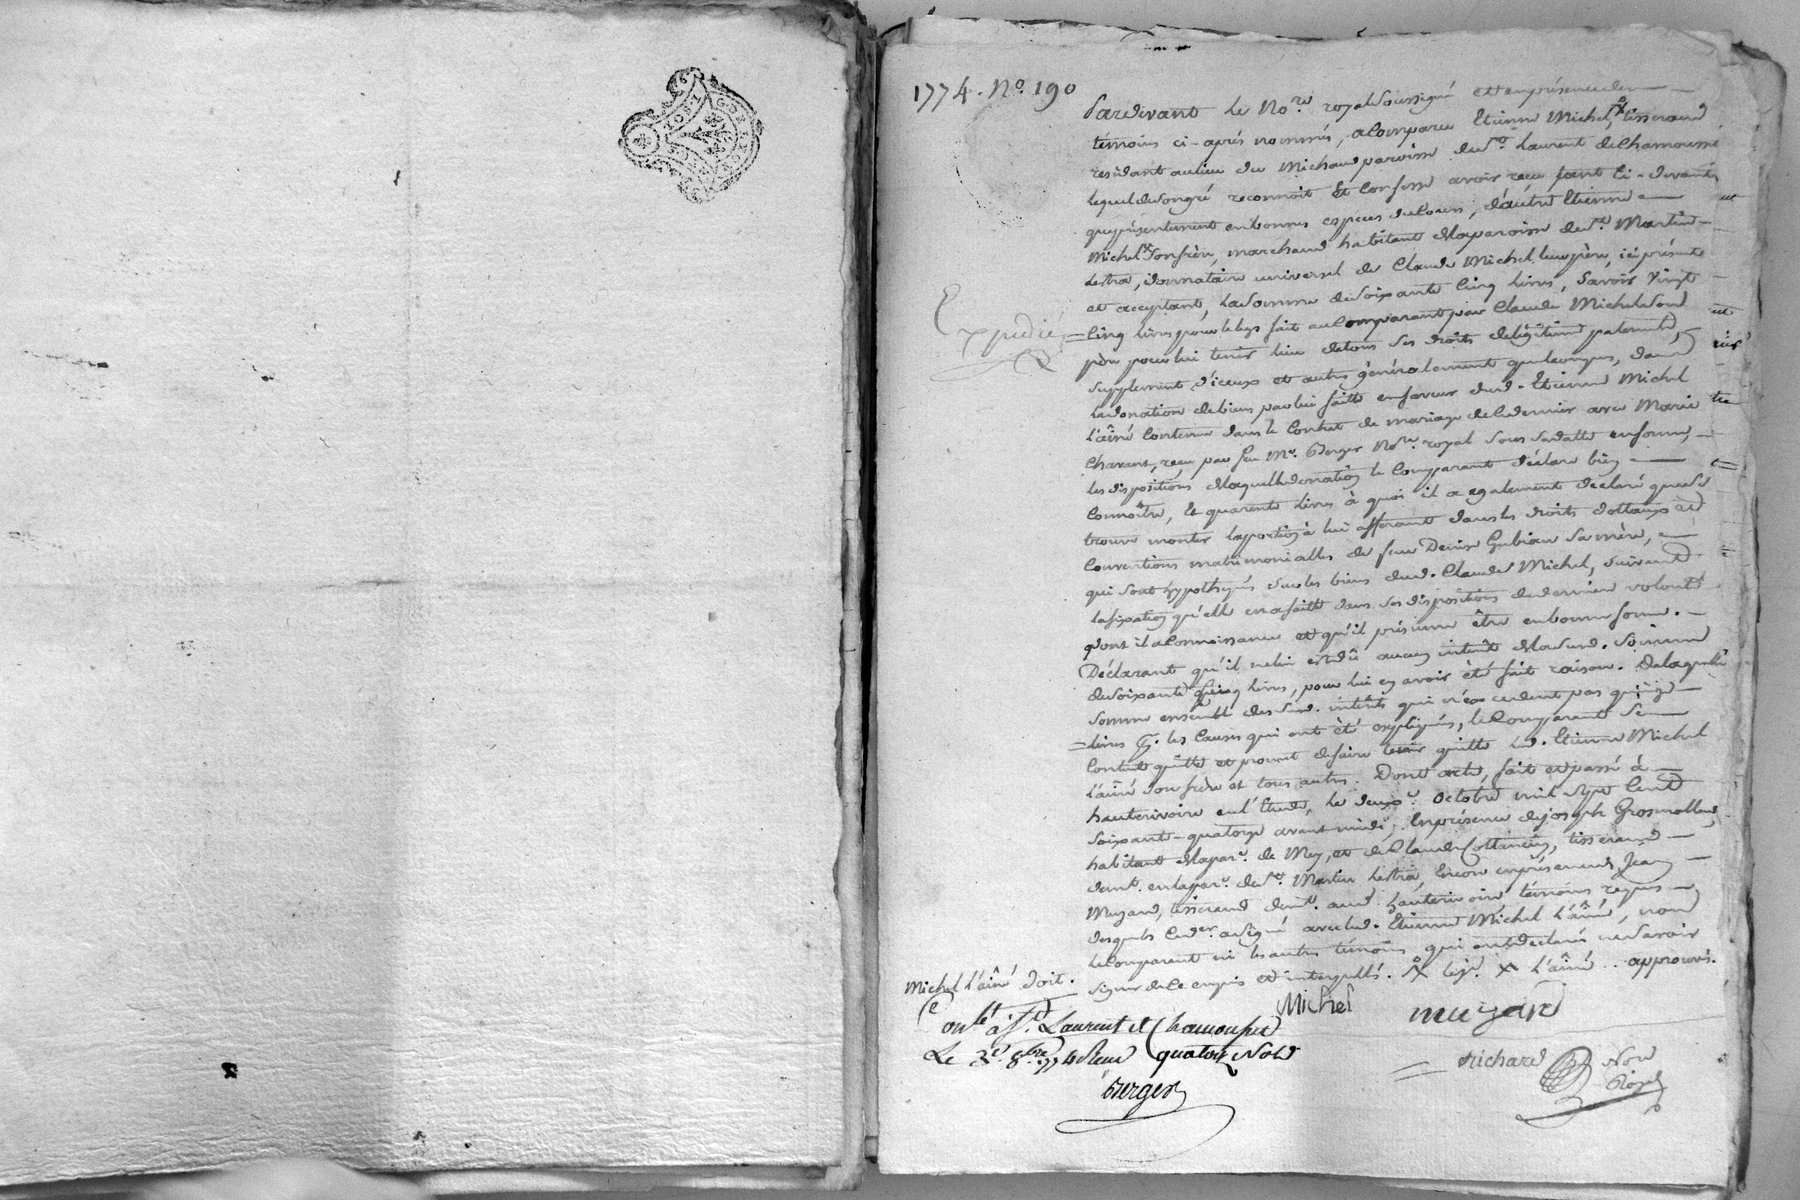 1774. No. 190
Pardevant le Nore. royal soussigné et en présence des
témoins ci-après nommés, a comparu Etienne Michel, x tisserand
résidant au lieu du Michaud paroisse de st. Laurent de Chamousse
lequel de son gré reconnoit et Confesse avoir reçu tant Ci-devant
que présentement en bonnes espèces de Cours, d'autre Etienne
Michel x son frère, marchand habitant de la paroisse de st. Martin
Lestra, donnataire universel de Claude Michel, leur père, ici présent
et acceptant, la somme de soixante Cinq livres, savoir vingt
Cinq livres pour le legs fait au Comparant par Claude Michel son
père pour lui tenir lieu de tous ses droits de légitime paternels,
supplement d'iceux et autres généralement quelconques, dans
la donation de biens par lui faitte en faveur dud. Etienne Michel
l'aîné Contenue dans le Contrat de mariage de Ce dernier avec Marie
Chavant, reçu par feu Me. Berger Nore. royal sous sa datte en forme,
les dispositions de laquelle donation le Comparant déclare bien
Connoitre, Et quarente livres à quoi il a egalement declaré que se
trouve monter la portion à lui afferante dans les droits dottaux et
Conventions matrimonialles de feue Denise Gubian sa mère,
qui sont hypothéqués sur les biens dud. Claude Michel, suivant
la fixation qu'elle en a faitte dans ses dispositions de derniere volonté
dont il a Connoissance et qu'il présume être en bonne forme.
Déclarant qu'il ne lui est dû aucun intérêt de la susd. somme
de soixante Cinq livres, pour lui en avoir été fait raison. De laquelle
somme ensemble des susd. intérêts qui n'excedent pas quinze
livres p. les Causes qui ont été expliquées, le Comparant se
Contente quitte et promet de faire tenir quitte led. Etienne Michel
l'aîné son frère et tous autres. Dont acte, fait et passé à
hauterivoire en l'Etude, le deuxe. octobre mil sept Cent
soixante-quatorze avant midi; En présence de joseph Grosmollard
habitant de la pare. de Mey, et de Claude Cottancin, tisserand
demt. en la pare. de st. Martin Lestra, Encore en présence de Jean
Muzard, tisserand demt. aud. hauterivoire, témoins requis
desquels Ce der. a signé avec led. Etienne Michel l'aîné, non
le Comparant ni les autres témoins qui ont déclaré ne savoir
signer de Ce enquis et interpellés. x le je. x l'aîné.. approuvés.
Expedié
Michel l'aîné doit.
Michel
muzard
Conlé. à St. Laurent de Chamousset
Le 3e. 8bre 1774 Reçu quatorze sols
Berger
Richard
Nore
Royal